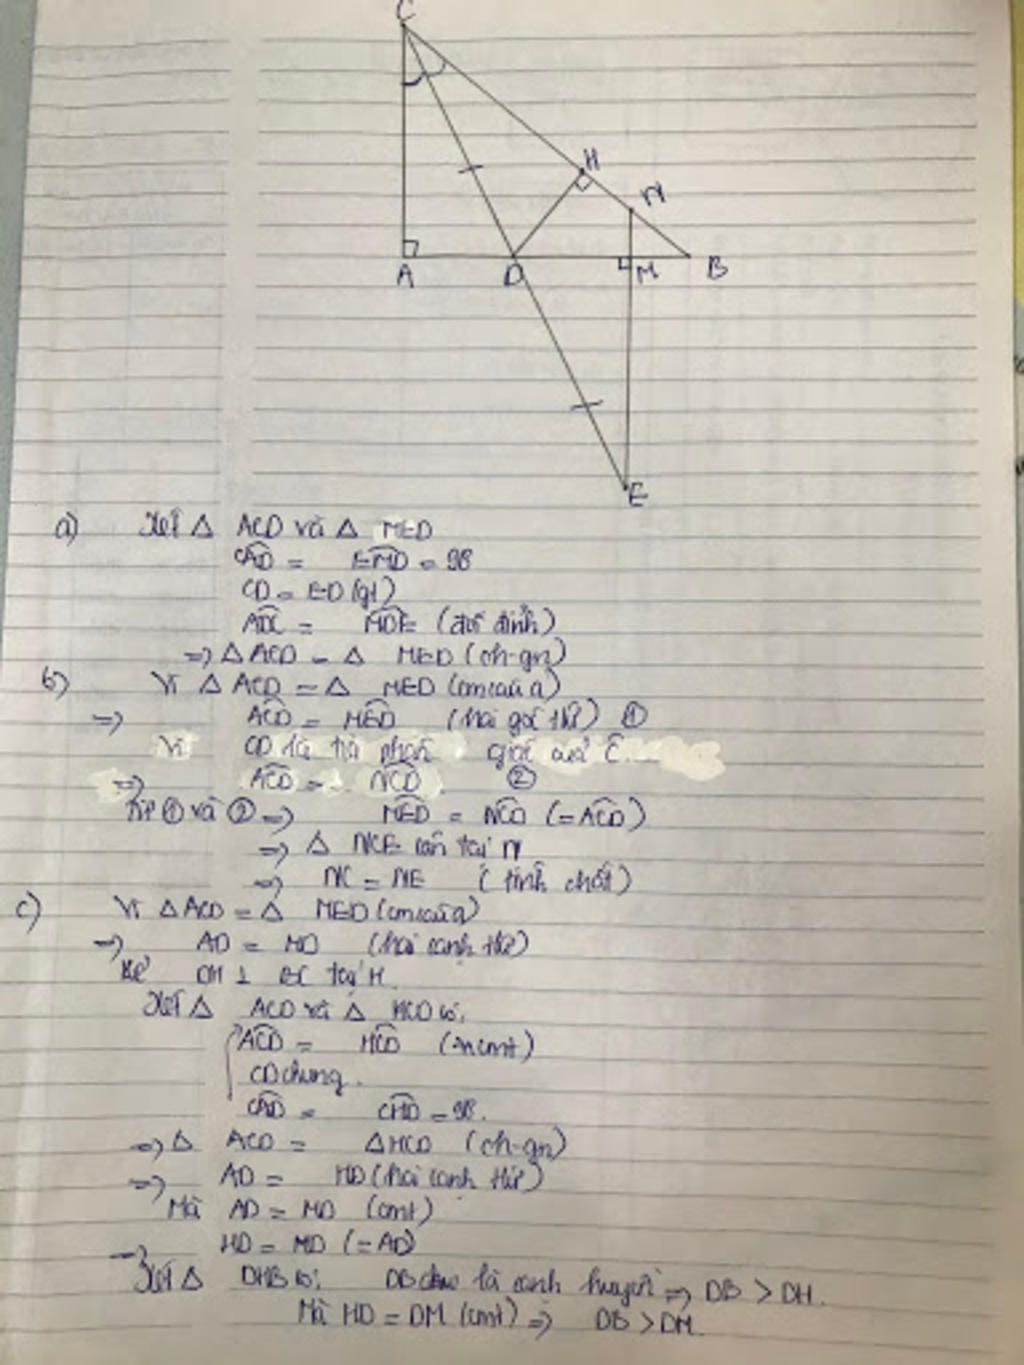 C
H
N
A
D
M
B
E
a) Xét Δ ACD và Δ MED
CAD = EMD = 90
CD = ED (gt)
ADC = MDE (đối đỉnh)
=> Δ ACD = Δ MED (ch-gn)
b) Vì Δ ACD = Δ MED (cm câu a)
=> ACD = MED (hai góc t/ứ) ①
Vì CD là tia phân giác của C
=> ACD = NCD ②
Từ ① và ② => MED = NCD (= ACD)
=> Δ NCE cân tại N
=> NC = NE (tính chất)
c) Vì Δ ACD = Δ MED (cm câu a)
=> AD = MD (hai cạnh t/ứ)
Kẻ DH ⊥ BC tại H.
Xét Δ ACD và Δ HCD có:
ACD = HCD (cmt)
CD chung.
CAD = CHD = 90.
=> Δ ACD = Δ HCD (ch-gn)
=> AD = HD (hai cạnh t/ứ)
Mà AD = MD (cmt)
=> HD = MD (= AD)
Xét Δ DHB có: DB là cạnh huyền => DB > DH.
Mà HD = DM (cmt) => DB > DM.